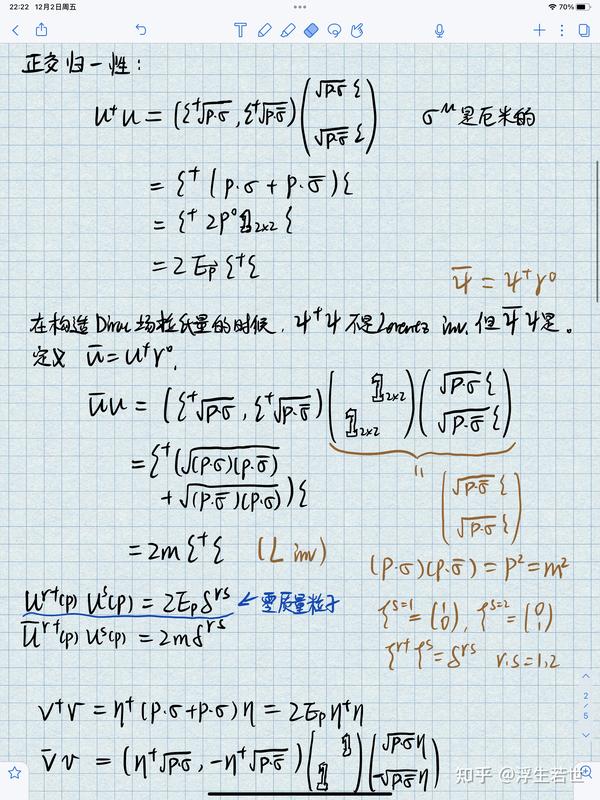 22:22 12月2日周五
70%
正交归一性:
u†u = (ξ†√p·σ, ξ†√p·σ̄) (√p·σ ξ
√p·σ̄ ξ) σ^μ 是厄米的
= ξ† (p·σ + p·σ̄) ξ
= ξ† 2p⁰ 𝟙₂ₓ₂ ξ
= 2E_p⃗ ξ†ξ
ψ̄ = ψ†γ⁰
在构造 Dirac 场拉氏量的时候, ψ†ψ 不是 Lorentz inv, 但 ψ̄ψ 是。
定义 ū = u†γ⁰,
ūu = (ξ†√p·σ, ξ†√p·σ̄) ( 𝟙₂ₓ₂
𝟙₂ₓ₂ ) (√p·σ ξ
√p·σ̄ ξ)
= ξ†(√(p·σ)(p·σ̄)
+ √(p·σ̄)(p·σ)) ξ
"
(√p·σ̄ ξ
√p·σ ξ)
= 2m ξ†ξ (L inv)
(p·σ)(p·σ̄) = p² = m²
u^{r†}(p) u^s(p) = 2E_p δ^{rs} ← 零质量粒子
ū^{r†}(p) u^s(p) = 2m δ^{rs}
ξ^{s=1} = (1
0), ξ^{s=2} = (0
1)
ξ^{r†} ξ^s = δ^{rs} r.s = 1,2
v†v = η† (p·σ + p·σ) η = 2E_p η†η
v̄v = (η†√p·σ, -η†√p·σ̄) ( 𝟙
𝟙 ) (√p·σ η
-√p·σ̄ η)
2
/
5
知乎 @浮生若世